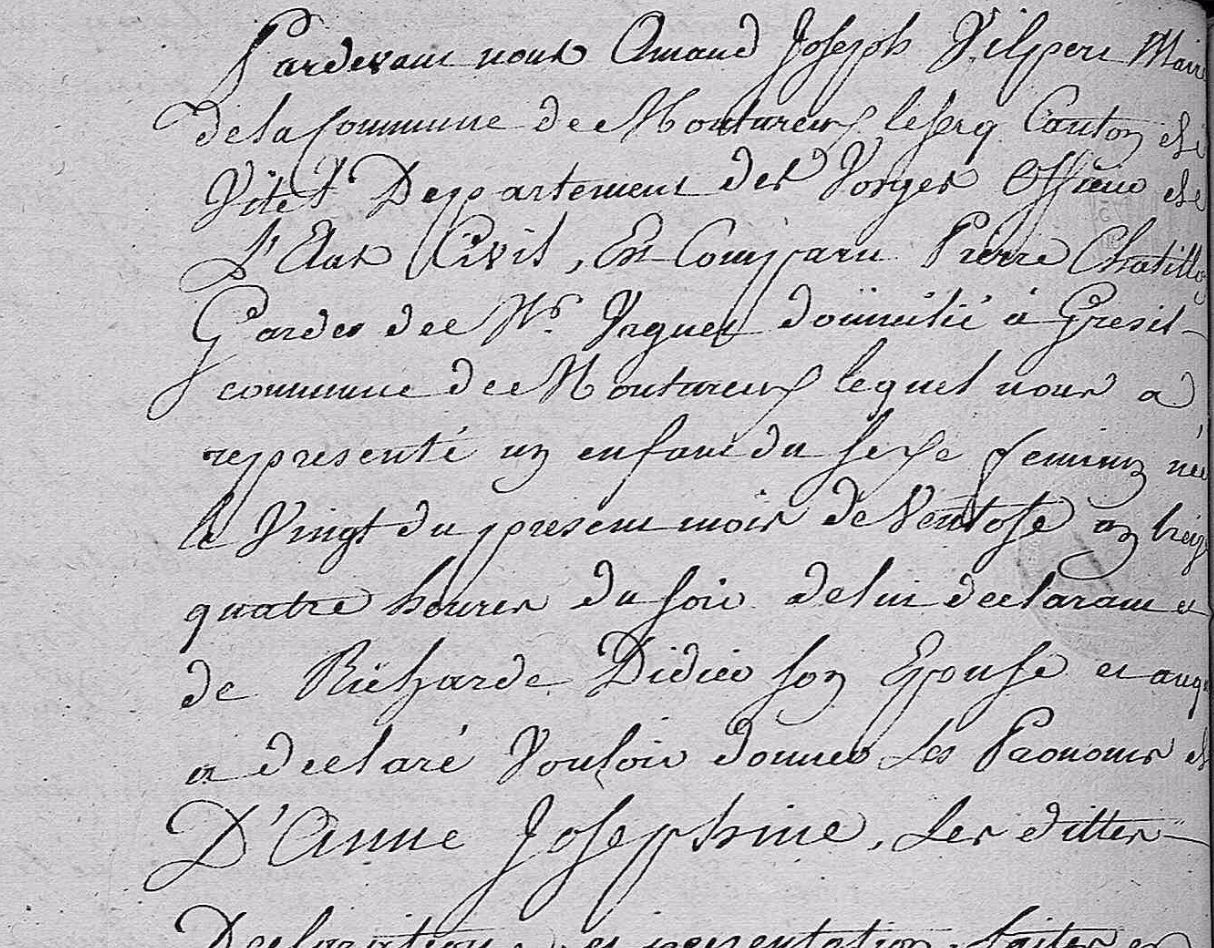 Pardevant nous Amand Joseph Vilpere Maire
de la Commune de Montureux le Serq Canton de
Vitel Departement des Vosges Officier de
L'Etat Civil, Est Comparu Pierre Chatillo
Gardes de Mr. domicilié à Gresil-
commune de Montureux lequel nous a
representé un enfant du sexe feminin née
le Vingt du present mois de Ventose an treize
quatre heures du soir de lui declarant et
de Richarde Didier son Epouse et auqu
a declaré Vouloir donner Les Prenoms de
D'Anne Josephine, Les dittes
Declaration et presentation faites